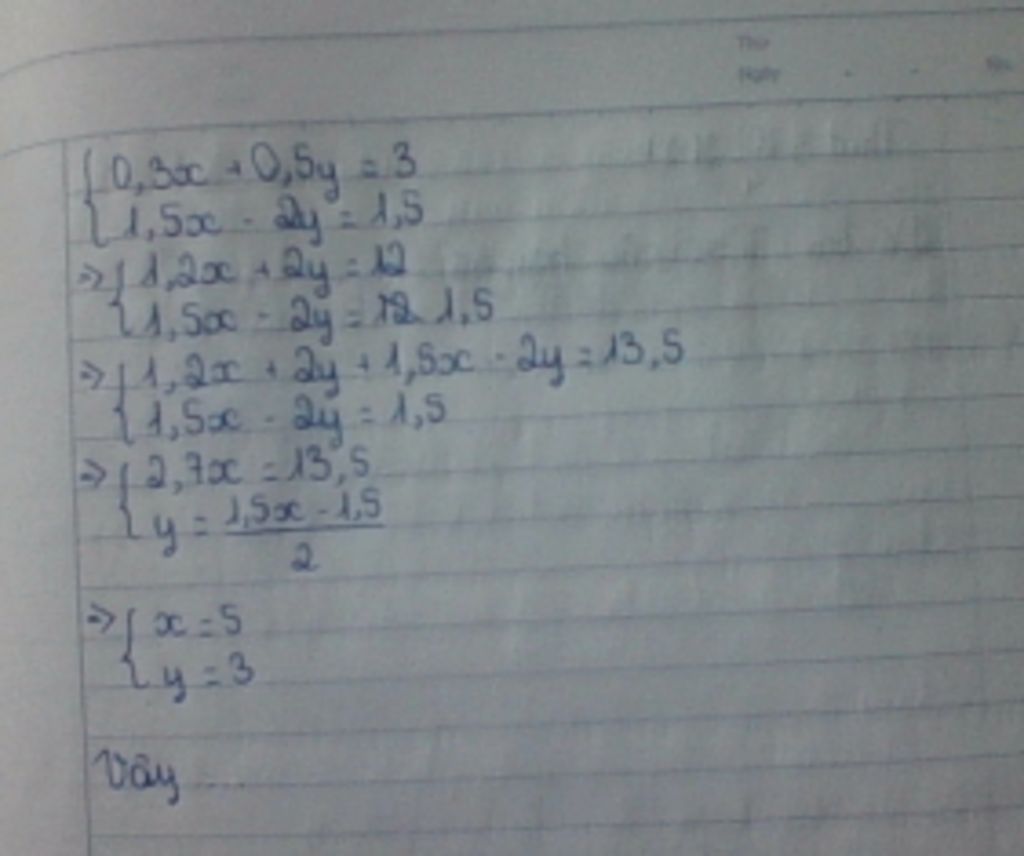 Thứ
Ngày . . No.
{ 0,3x + 0,5y = 3
{ 1,5x - 2y = 1,5
=> { 1,2x + 2y = 12
{ 1,5x - 2y = 12 1,5
=> { 1,2x + 2y + 1,5x - 2y = 13,5
{ 1,5x - 2y = 1,5
=> { 2,7x = 13,5
{ y = (1,5x - 1,5) / 2
=> { x = 5
{ y = 3
Vậy ......